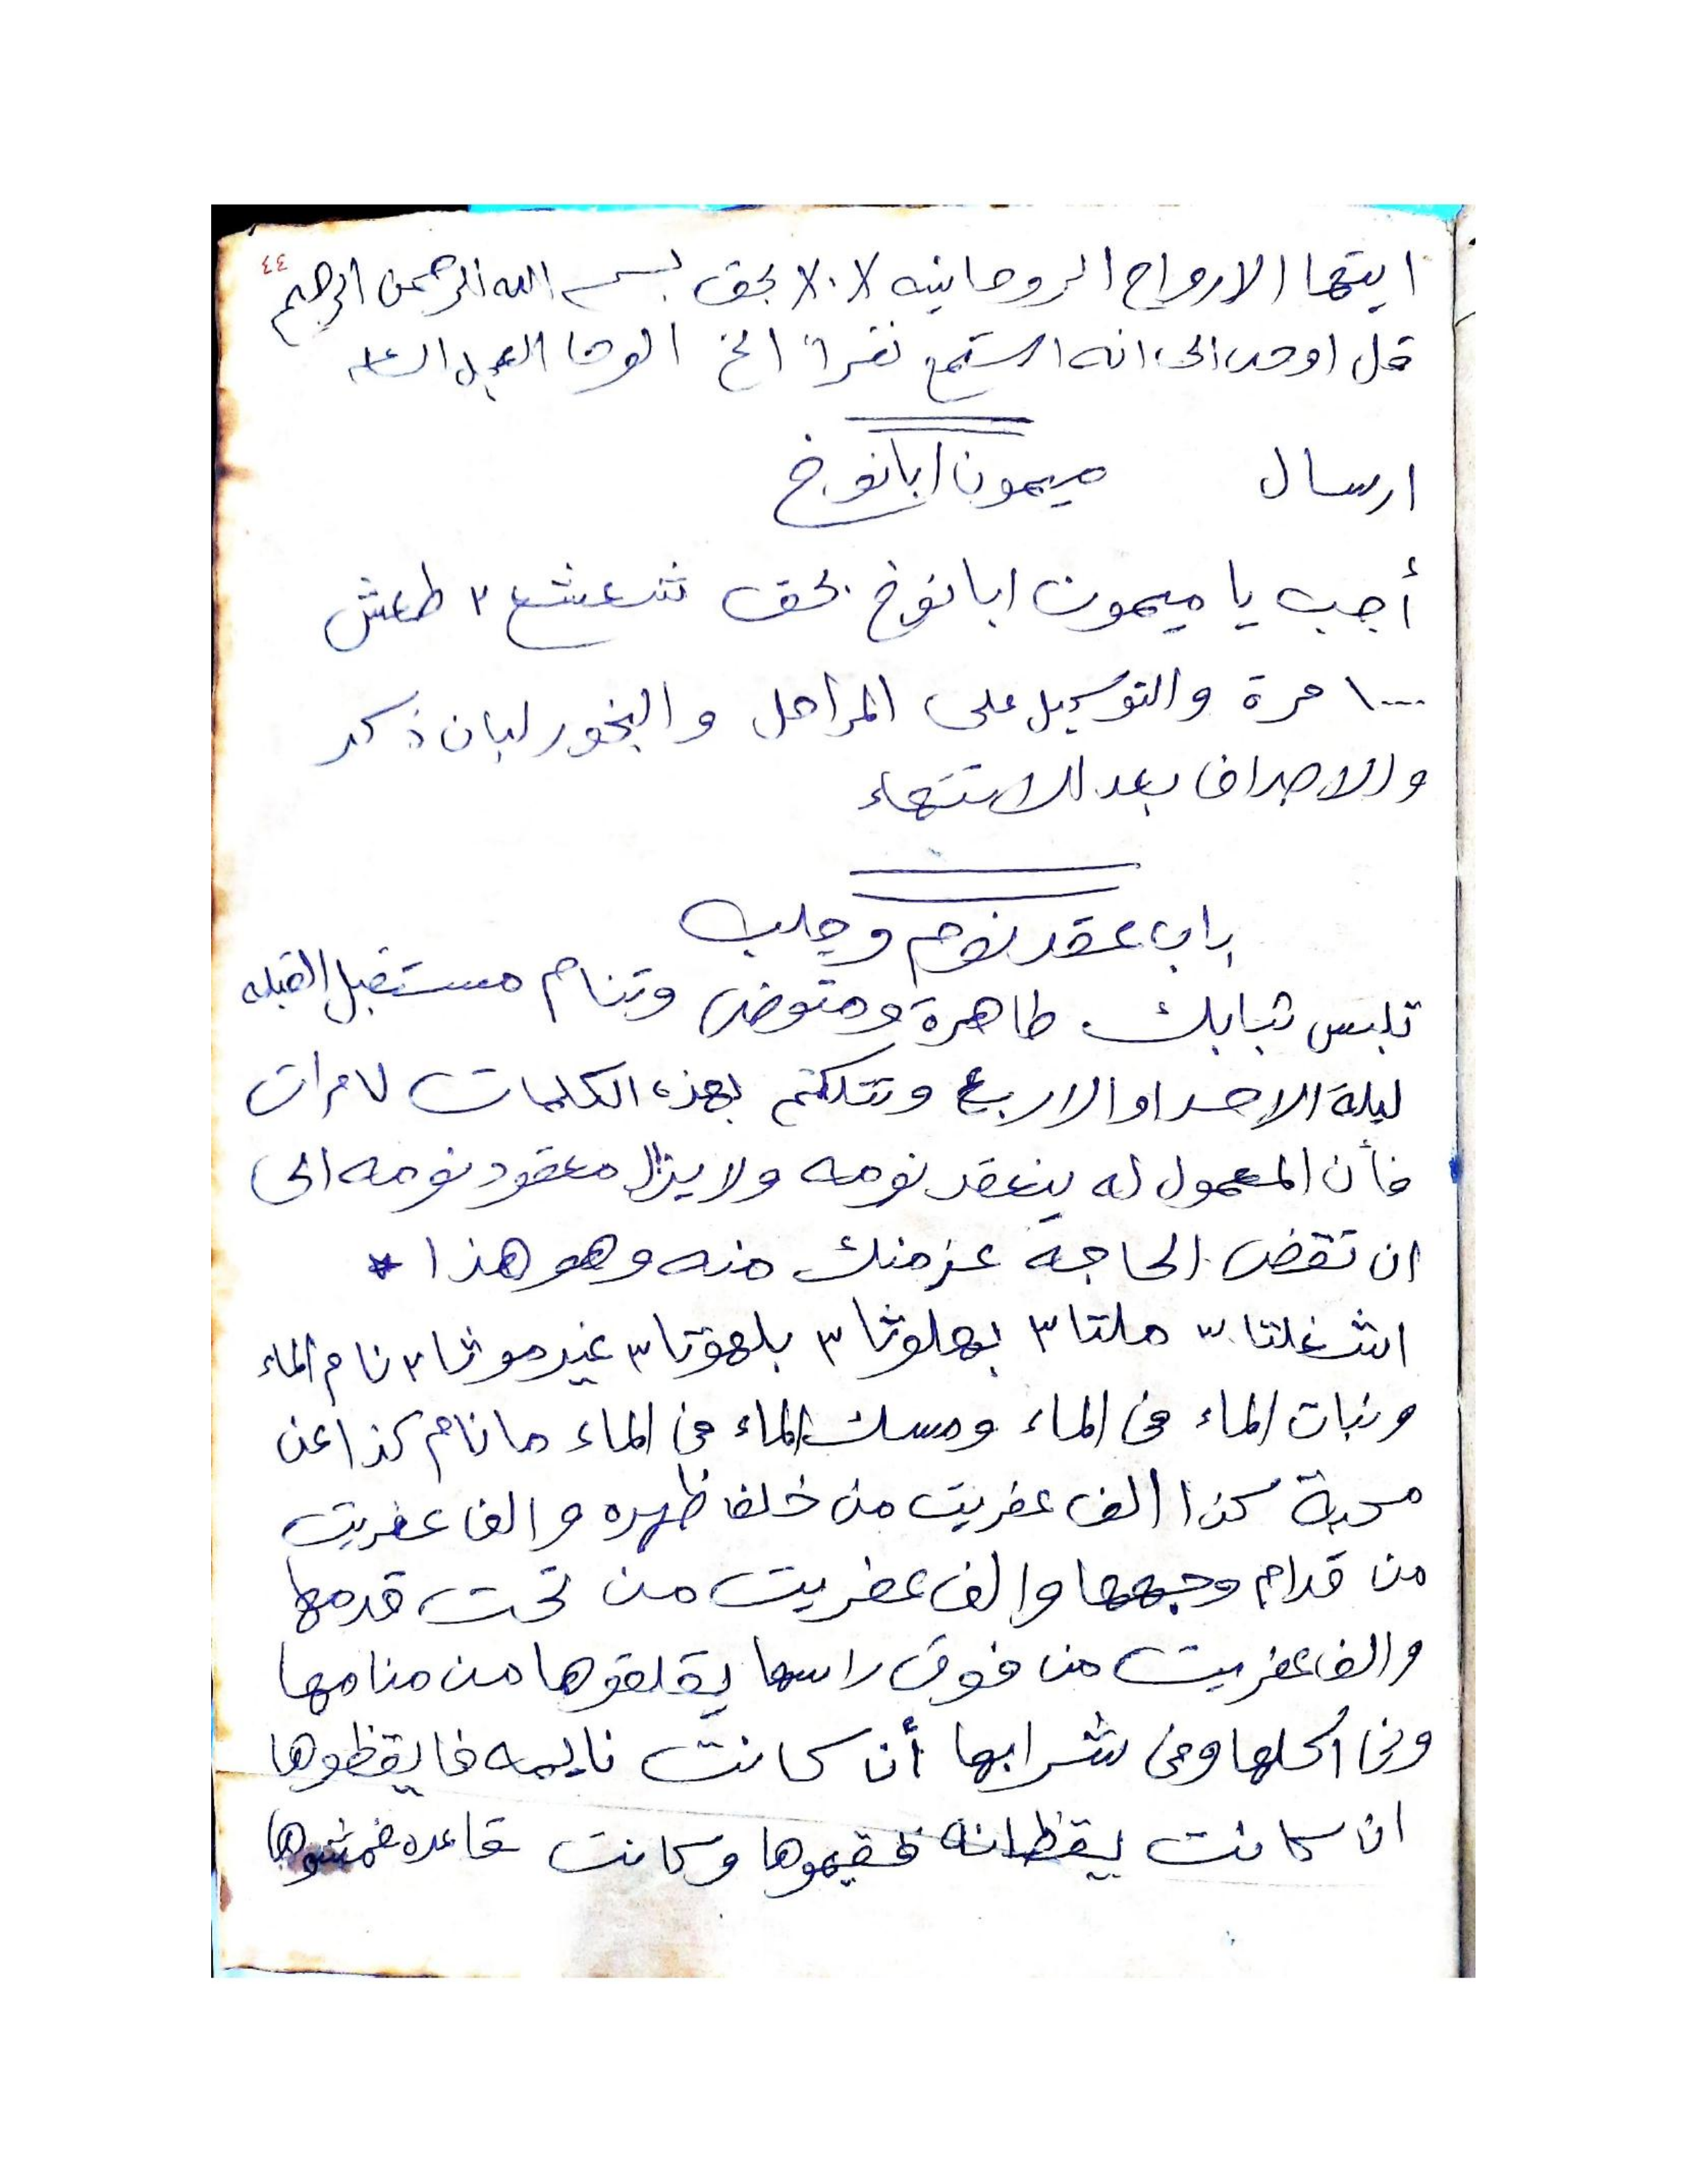 ٤٤
ايتها الارواح الروحانيه ٧٠٧ بحق بسم الله الرحمن الرحيم
قل اوحى الى انه استمع نفرا الخ الوحا العجل الساعه
ارسال ميمون ابانوخ
أجب يا ميمون ابانوخ بحق شعشع ٢ طعش
١٠٠٠ مرة والتوكيل على المراحل والبخور لبان ذكر
والاصراف بعد الانتهاء
باب عقد نوم وجلب
تلبس ثيابك طاهرة ومتوضى وتنام مستقبل القبله
ليلة الاحد او الاربع وتتكلم بهذه الكلمات ٧ مرات
فأن المعمول له ينعقد نومه ولا يزال معقود نومه الى
ان تقضى الحاجة عزمنك منه وهو هذا *
اشغلتا ٣ ملتا ٣ بهلوثا ٣ بلهوتا ٣ غيرموثا ٢ نام الماء
ونبات الماء فى الماء ومسك الماء فى الماء ما نام كذا عن
محبة كذا الف عفريت من خلف ظهره والف عفريت
من قدام وجهها والف عفريت من تحت قدمها
والف عفريت من فوق راسها يقلقوها من منامها
وفى اكلها وفى شرابها أن كانت نايمه فايقظوها
ان كانت يقظانه فقيموها وكانت قاعده فمشوها